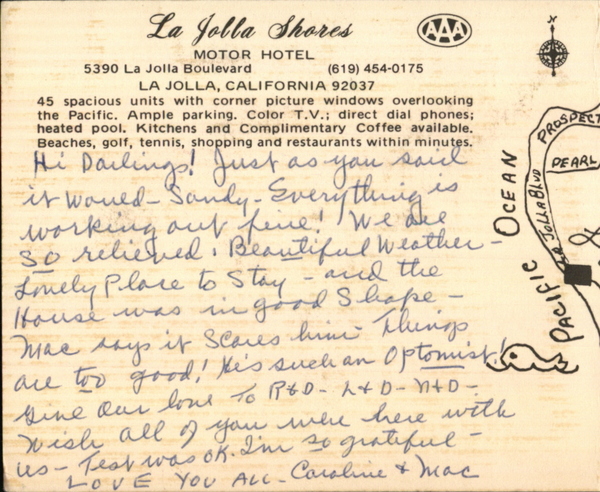 La Jolla Shores
AAA
MOTOR HOTEL
5390 La Jolla Boulevard (619) 454-0175
LA JOLLA, CALIFORNIA 92037
45 spacious units with corner picture windows overlooking
the Pacific. Ample parking. Color T.V.; direct dial phones;
heated pool. Kitchens and Complimentary Coffee available.
Beaches, golf, tennis, shopping and restaurants within minutes.
Hi Darlings! Just as you said
it woued - Sandy - Everything is
working out fine! We are
so relieved. Beautiful Weather -
Lovely Place to Stay - and the
House was in good Shape -
Mac says it scares him - Things
are too good! He's such an Optomist!
Give our love To R&D - L&D - N&D -
Wish all of you were here with
us - Test was OK. I'm so grateful -
LOVE YOU ALL - Caroline & Mac
PROSPECT
PEARL
LA JOLLA BLVD
PACIFIC OCEAN